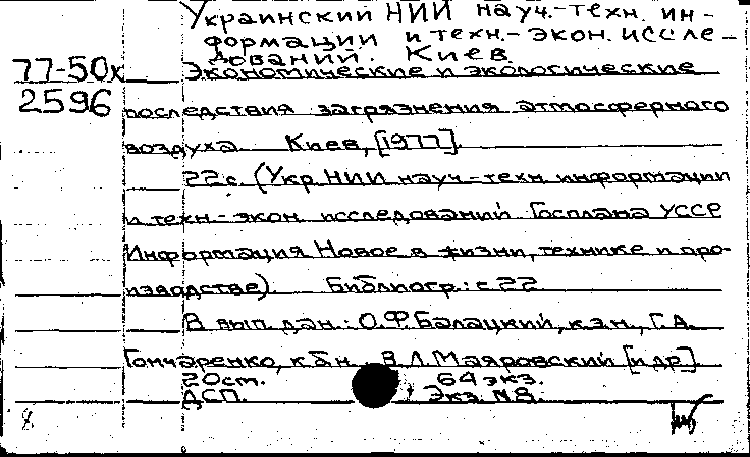 Украинский НИИ науч.-техн. ин-
формации и техн.-экон. иссле-
дований. Киев.
77-50х Экономические и экологические
2596 последствия загрязнения атмосферного
воздуха. Киев, [1977].
22 с. (Укр. НИИ науч.-техн. информации
и техн.-экон. исследований Госплана УССР
Информация Новое в жизни, технике и про-
изводстве). Библиогр.: с. 22
В вып. дан.: О.Ф. Балацкий, к.э.н., Г.А.
Гончаренко, к.б.н., В.Л. Маяровский [и др.]
20 ст. 64 экз.
ДСП. Экз. №8.
8